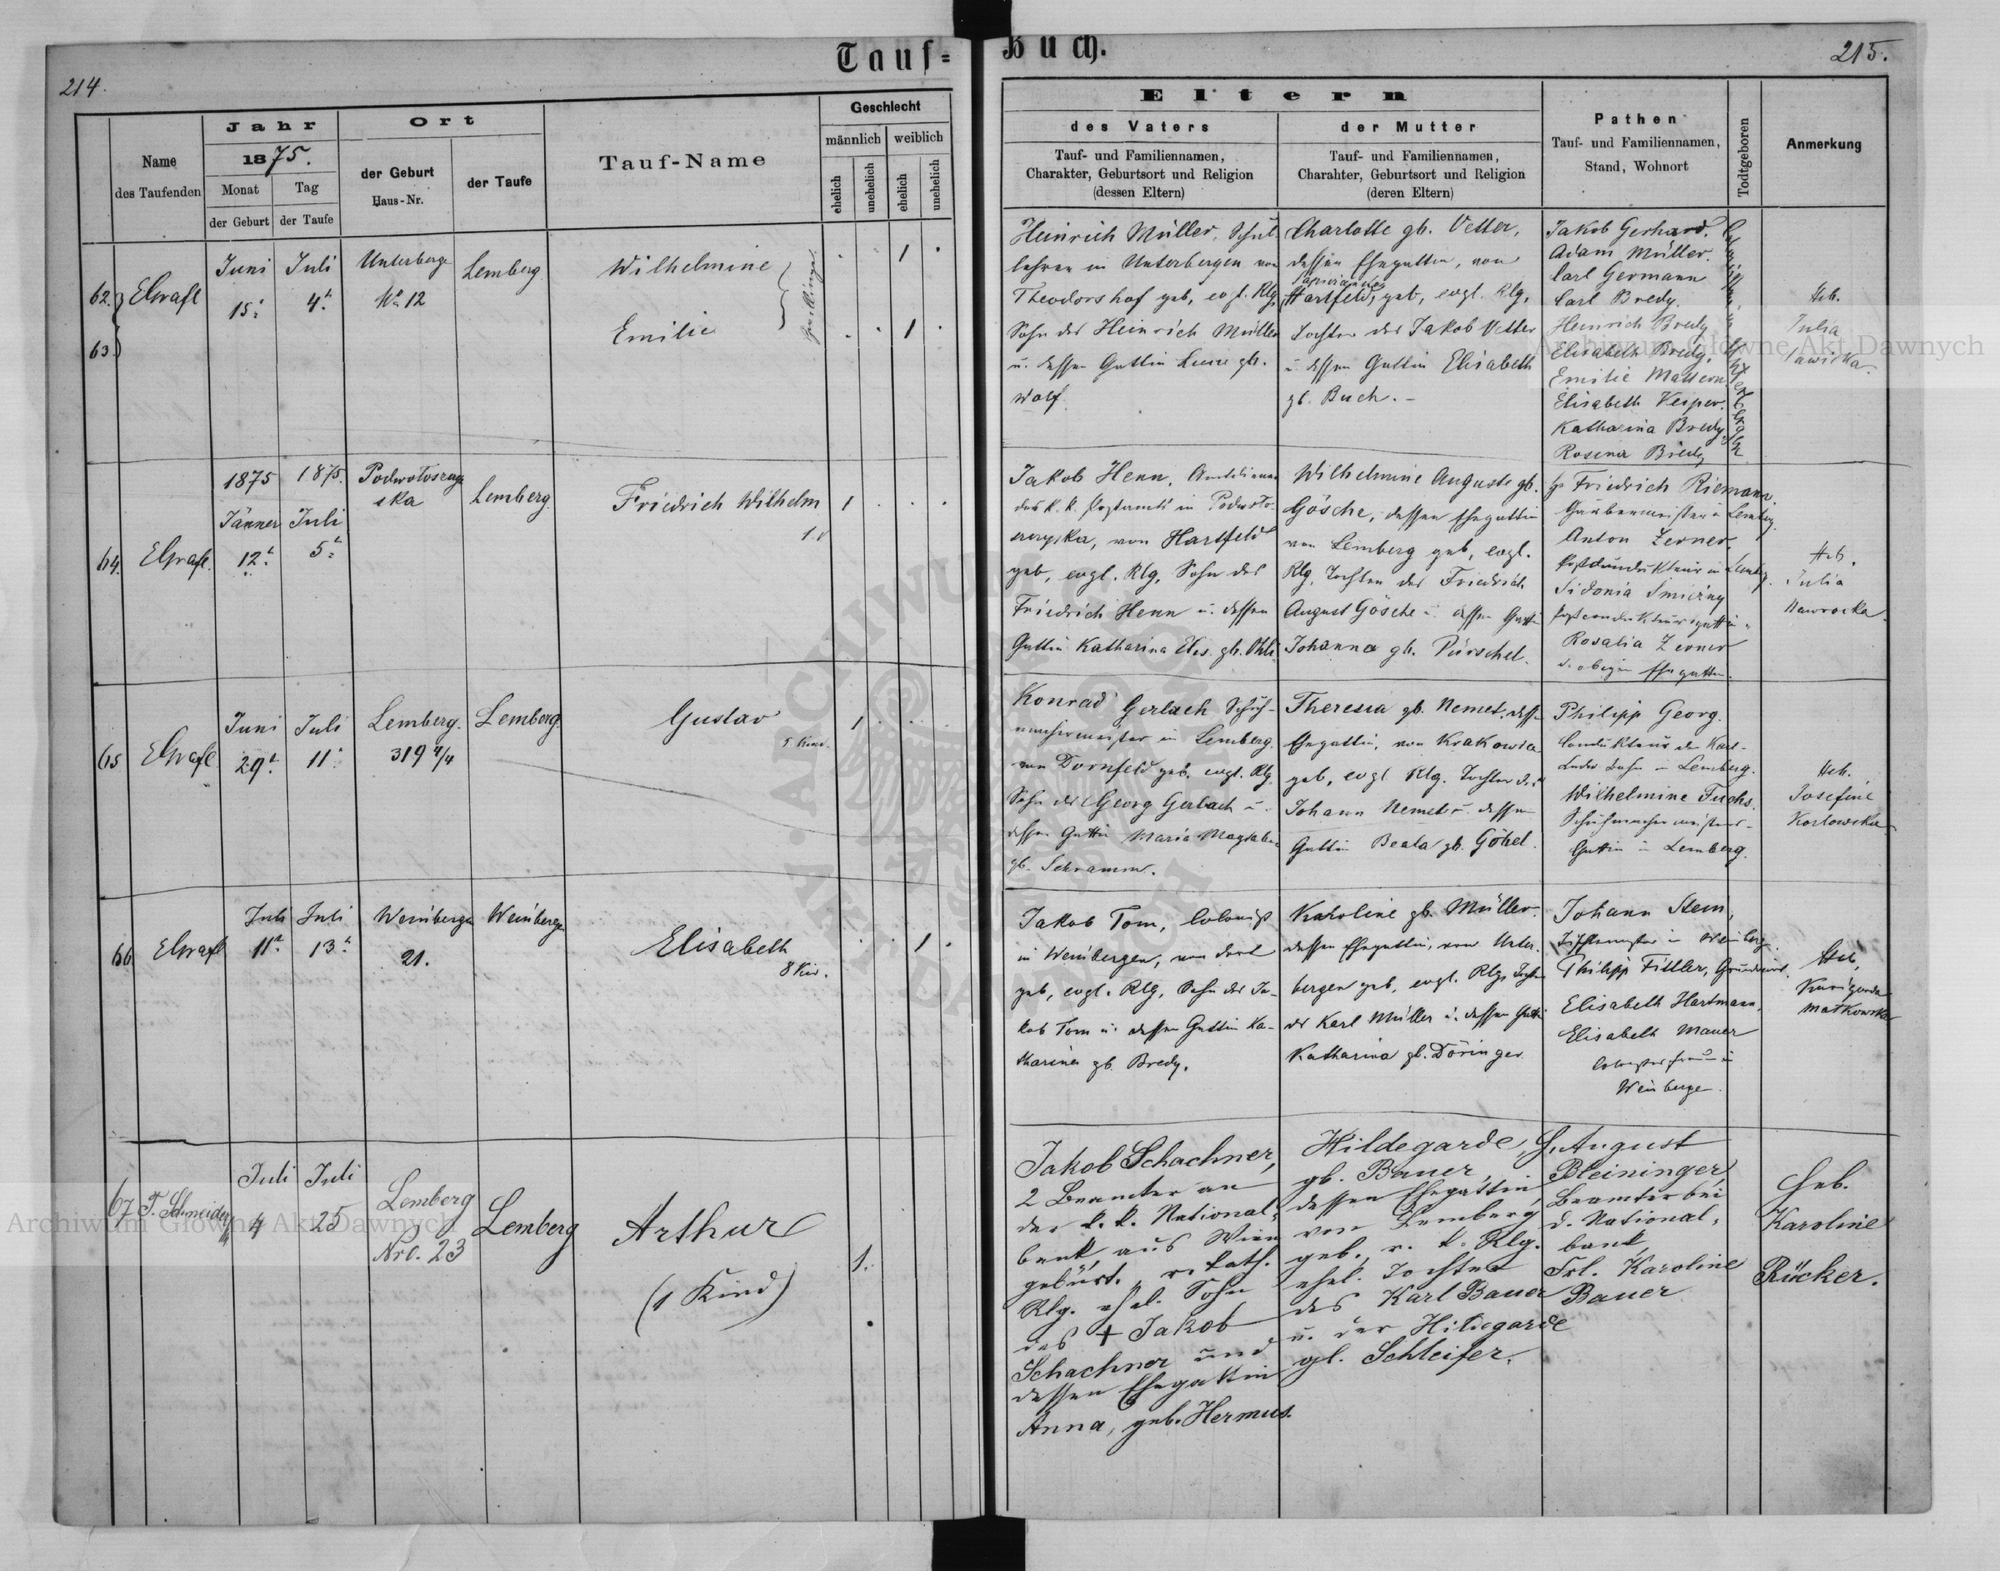 Tauf=
Buch.
214.
215.
Name
des Taufenden
Jahr
1875.
Monat
der Geburt
Tag
der Taufe
Ort
der Geburt
Haus-Nr.
der Taufe
Tauf-Name
Geschlecht
männlich
weiblich
ehelich
unehelich
ehelich
unehelich
Eltern
des Vaters
Tauf- und Familiennamen,
Charakter, Geburtsort und Religion
(dessen Eltern)
der Mutter
Tauf- und Familiennamen,
Charahter, Geburtsort und Religion
(deren Eltern)
Pathen
Tauf- und Familiennamen,
Stand, Wohnort
Todtgeboren
Anmerkung
62.
63.
Juni
15.
Juli
4.
Unterberge
No 12
Lemberg
Wilhelmine
Emilie
1
1
Heinrich Müller, Schul-
lehrer in Unterbergen von
Theodorshof geb, evgl. Rlg.
Sohn des Heinrich Müller
u. dessen Gattin gb.
Wolf.
Charlotte gb. Vetter,
dessen Ehegattin, von
Hartfeld, geb, evgl. Rlg,
Tochter des Jakob Vetter
u dessen Gattin Elisabeth
gb. Buch. –
Jakob Gerhard.
Adam Müller.
Carl Germann
Carl Bredy.
Heinrich Bredy
Elisabeth Bredy.
Emilie
Elisabeth Vesper.
Katharina Bredy
Rosina Bredy
Heb.
Julia
64.
1875
Jänner
12.
1875.
Juli
5.
Lemberg.
Friedrich Wilhelm
1
Jakob Henn,
des k. k. Postamts in
von Hartfeld
geb, evgl. Rlg, Sohn des
Friedrich Henn u. dessen
Gattin Katharina Elis. gb.
Wilhelmine Auguste gb.
Gösche, dessen Ehegattin
von Lemberg geb, evgl.
Rlg, Tochter des Friedrich
August Gösche u dessen Gattin
Johanna gb. Pürschel.
H Friedrich Riemann.
in Lemberg.
Anton Zerner,
in Lemberg.
Sidonia
Rosalia Zerner
d. obigen Ehegattin.
Heb.
Julia
Nawrocka.
65
Juni
29.
Juli
11.
Lemberg.
319 4/4
Lemberg.
Gustav
5 Kind.
1
Konrad Gerlach Schuh-
machermeister in Lemberg.
von Dornfeld geb. evgl. Rlg.
Sohn des Georg Gerlach u.
dessen Gattin Maria Magdalena
gb. Schramm.
Theresia gb. Nemet, dessen
Ehegattin, von Krakowiec
geb, evgl Rlg. Tochter des
Johann Nemet u. dessen
Gattin Beata gb. Göhel.
Philipp Georg.
Condukteur der Karl-
Ludw. Bahn in Lemberg.
Wilhelmine Fuchs.
Schuhmachermeisters-
Gattin in Lemberg.
Heb.
Josefine
Kozlowska
66
Juli
11.
Juli
13.
Weinbergen
21.
Weinbergen
Elisabeth
8 Kin.
1
Jakob Tom, Colonist
in Weinbergen, von dort
geb, evgl. Rlg, Sohn des Ja-
kob Tom u. dessen Gattin Ka-
tharina gb. Bredy.
Karoline gb. Müller.
dessen Ehegattin, von Unter-
bergen geb, evgl. Rlg, Tochter
des Karl Müller u. dessen Gattin
Katharina gb. Döringer.
Johann Stein,
in Weinberge.
Philipp Fittler, Grundwirt.
Elisabeth Hartmann,
Elisabeth Mauer
in
Weinbergen.
Heb.
Kunigunda
Matkowska
67
T. Schneider
Juli
4
Juli
25
Lemberg
Nro. 23
Lemberg
Arthur
(1 Kind)
1.
Jakob Schachner,
Beamter an
der k. k. National-
bank, aus Wien
gebürt. r. kath.
Rlg. ehel. Sohn
des † Jakob
Schachner und
dessen Ehegattin
Anna, geb. Hermus.
Hildegarde,
gb. Bauer,
dessen Ehegattin
von Lemberg
geb., r. k. Rlg.
ehel. Tochter
des Karl Bauer
u. der Hildegarde
gb. Schleifer.
H. August
Bleininger,
Beamter bei
d. National-
bank,
Frl. Karoline
Bauer
Heb.
Karoline
Rücker.
Archiwum Główne Akt Dawnych
Archiwum Główne Akt Dawnych